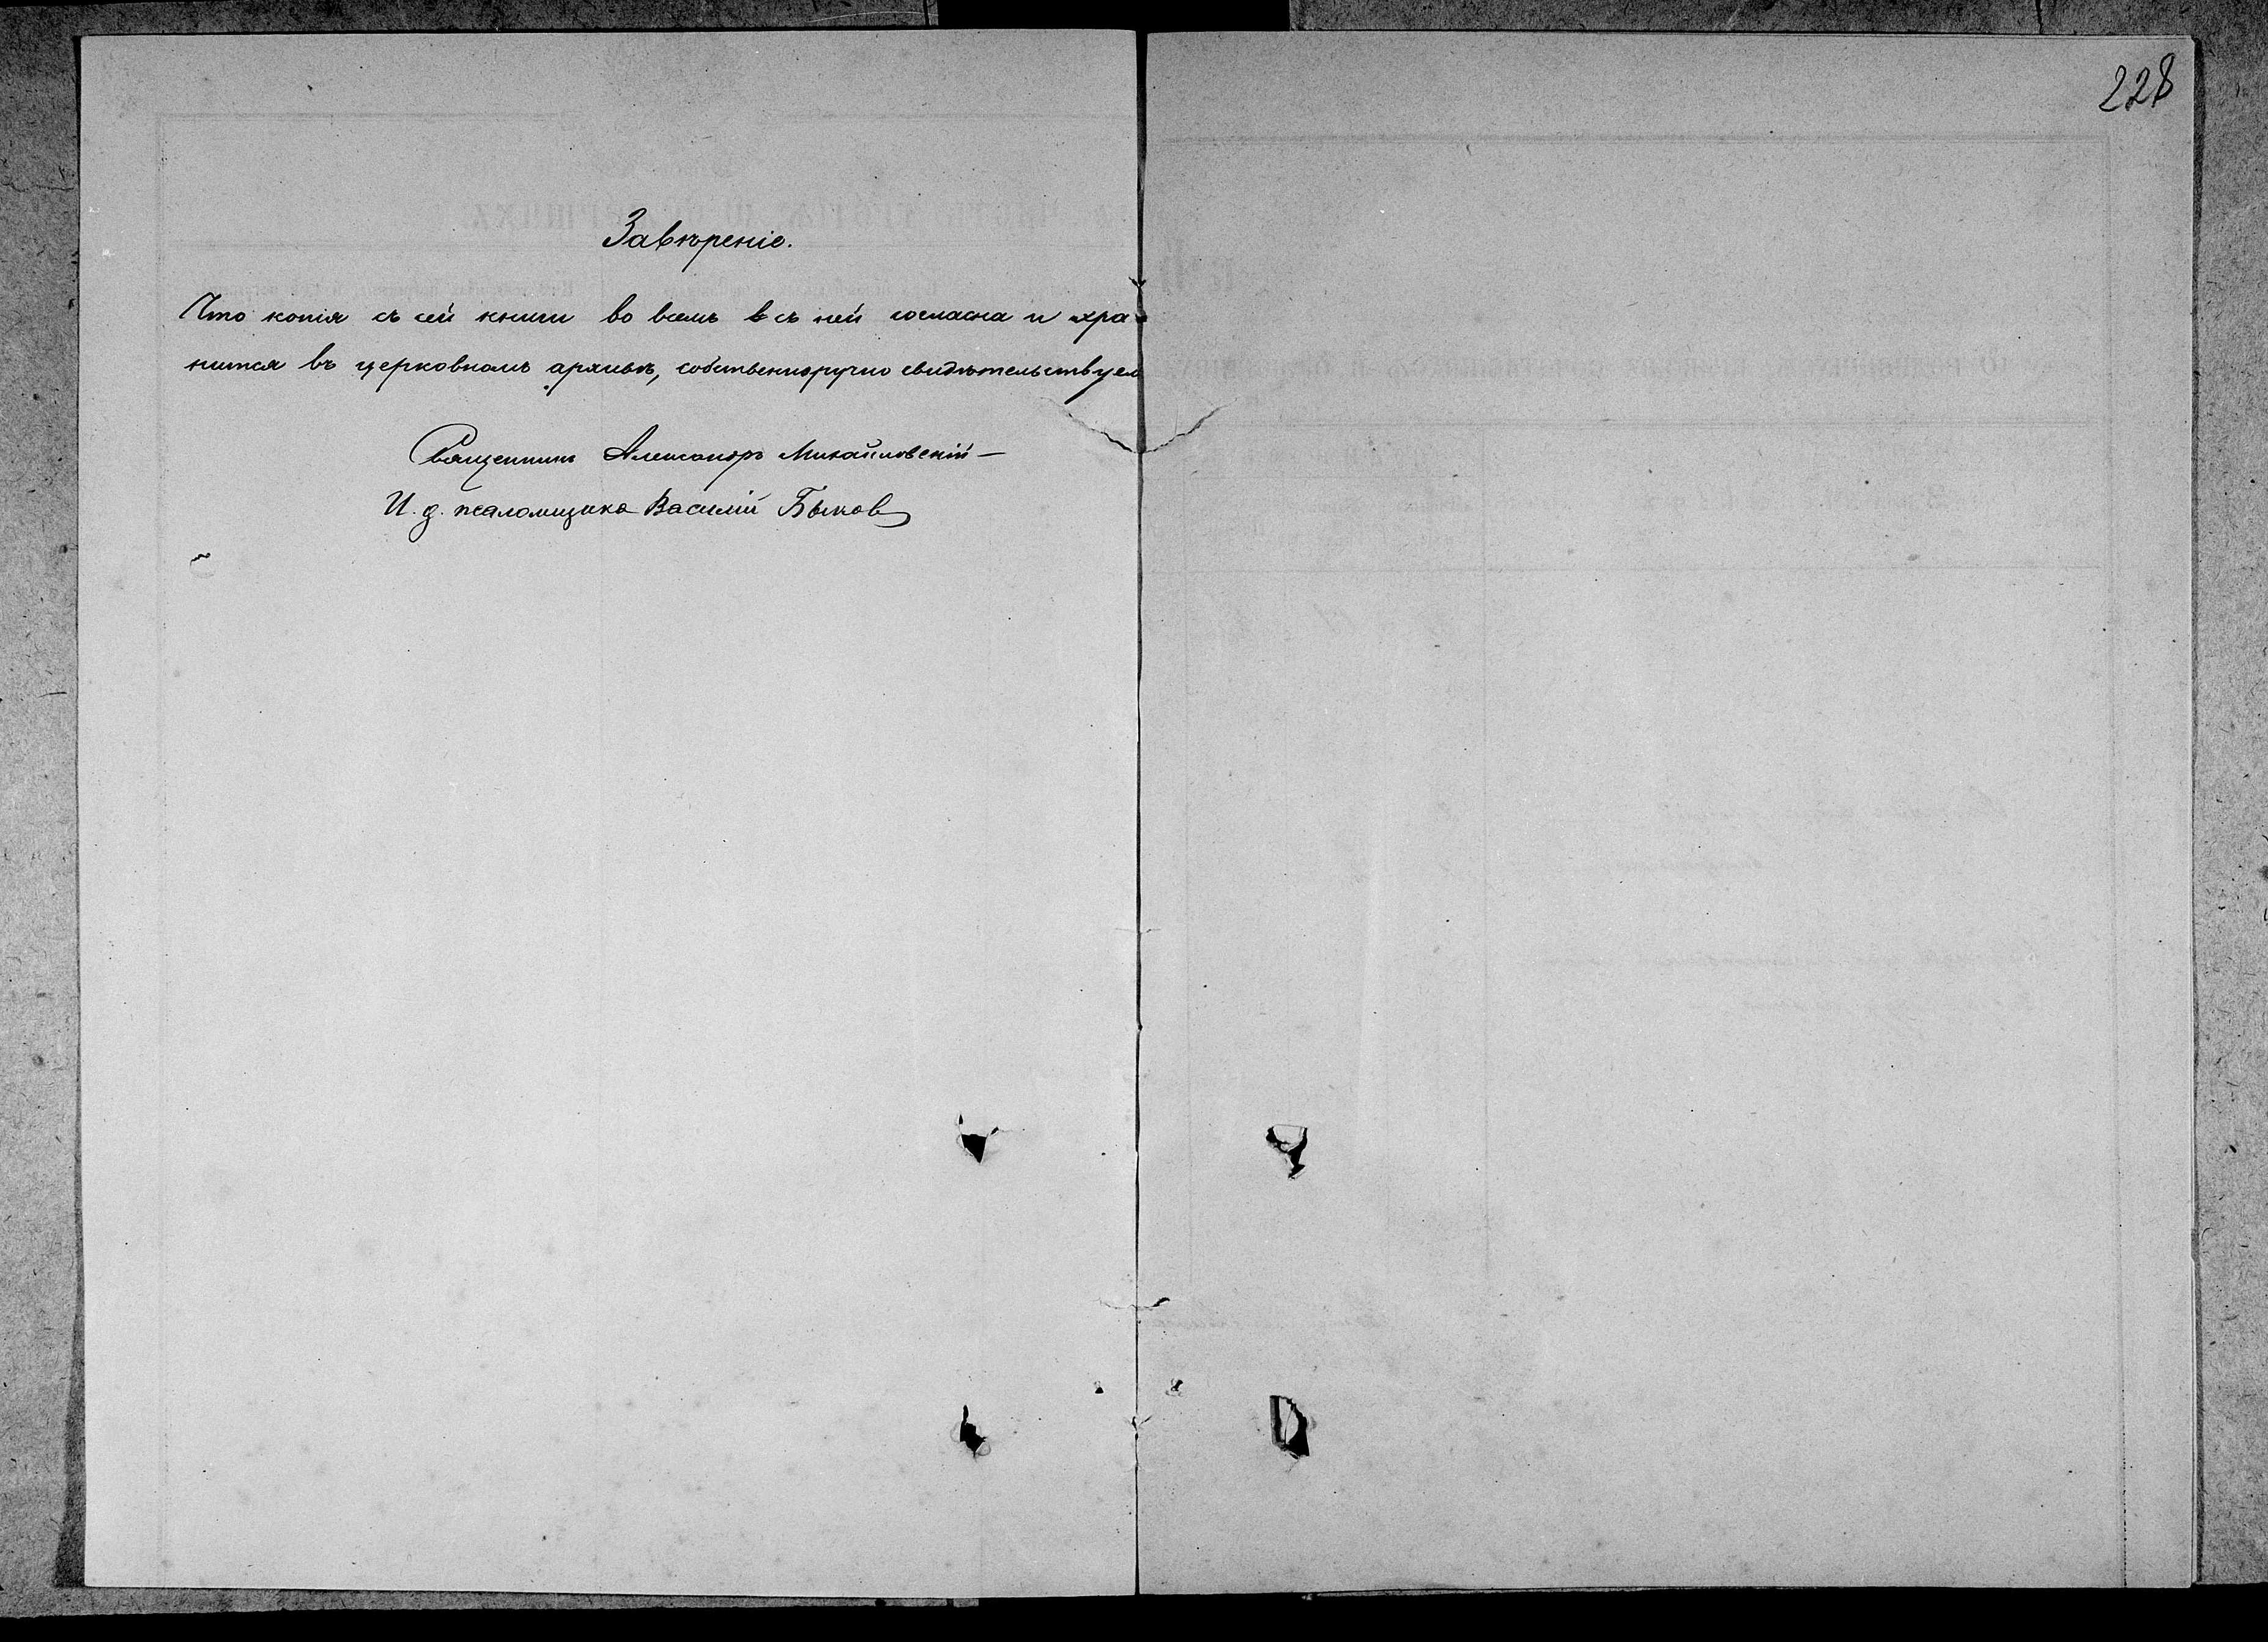 228
Завѣреніе.
Что копія съ сей книги во всемъ в съ ней согласна и хра-
нится въ церковномъ архивѣ, собственноручно свидѣтельствуем
Священникъ Александръ Михайловскій —
И. д. псаломщика Василій Быков